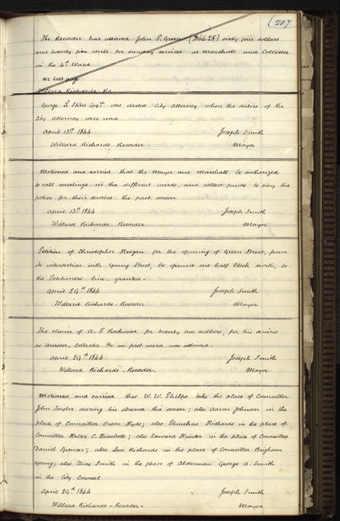 (207
The Recorder has allowed John P. Green ($64.25) sixty four dollars
and twenty five cents for sundry services as Marshall and Collector
in the 4th Ward
Willard Richards Rec
George P. Stiles Esqr was elected City Attorney when the duties of the
City Attorney were read
April 13th 1844 Joseph Smith
Willard Richards - Recorder Mayor
Motioned and carried that the Mayor and Marshall be authorized
to call meetings in the different wards, and collect funds to pay the
police for their services the past season
April 13th 1844 Joseph Smith
Willard Richards - Recorder Mayor
Petition of Christopher Meegan for the opening of Green Street, from
its intersection with Young Street, be opened one half block north, to
the Petitioners line - granted -
April 29th 1844 Joseph Smith
Willard Richards - Recorder Mayor
The claim of A. P. Rockwood for twenty two dollars, for his services
as Assessor, Collector &c in first ward was allowed.
April 29th 1844 Joseph Smith
Willard Richards - Recorder Mayor
Motioned and carried that W. W. Phelps take the place of Councillor
John Taylor during his absence this season; also Aaron Johnson in the
place of Councillor Orson Hyde; also Phinehas Richards in the place of
Councillor Heber C. Kimball; also Edward Hunter in the place of Councillor
Daniel Spencer; also Levi Richards in the place of Councillor Brigham
Young; also Elias Smith in the place of Alderman George A. Smith
in the City Council
April 29th 1844 Joseph Smith
Willard Richards - Recorder - Mayor